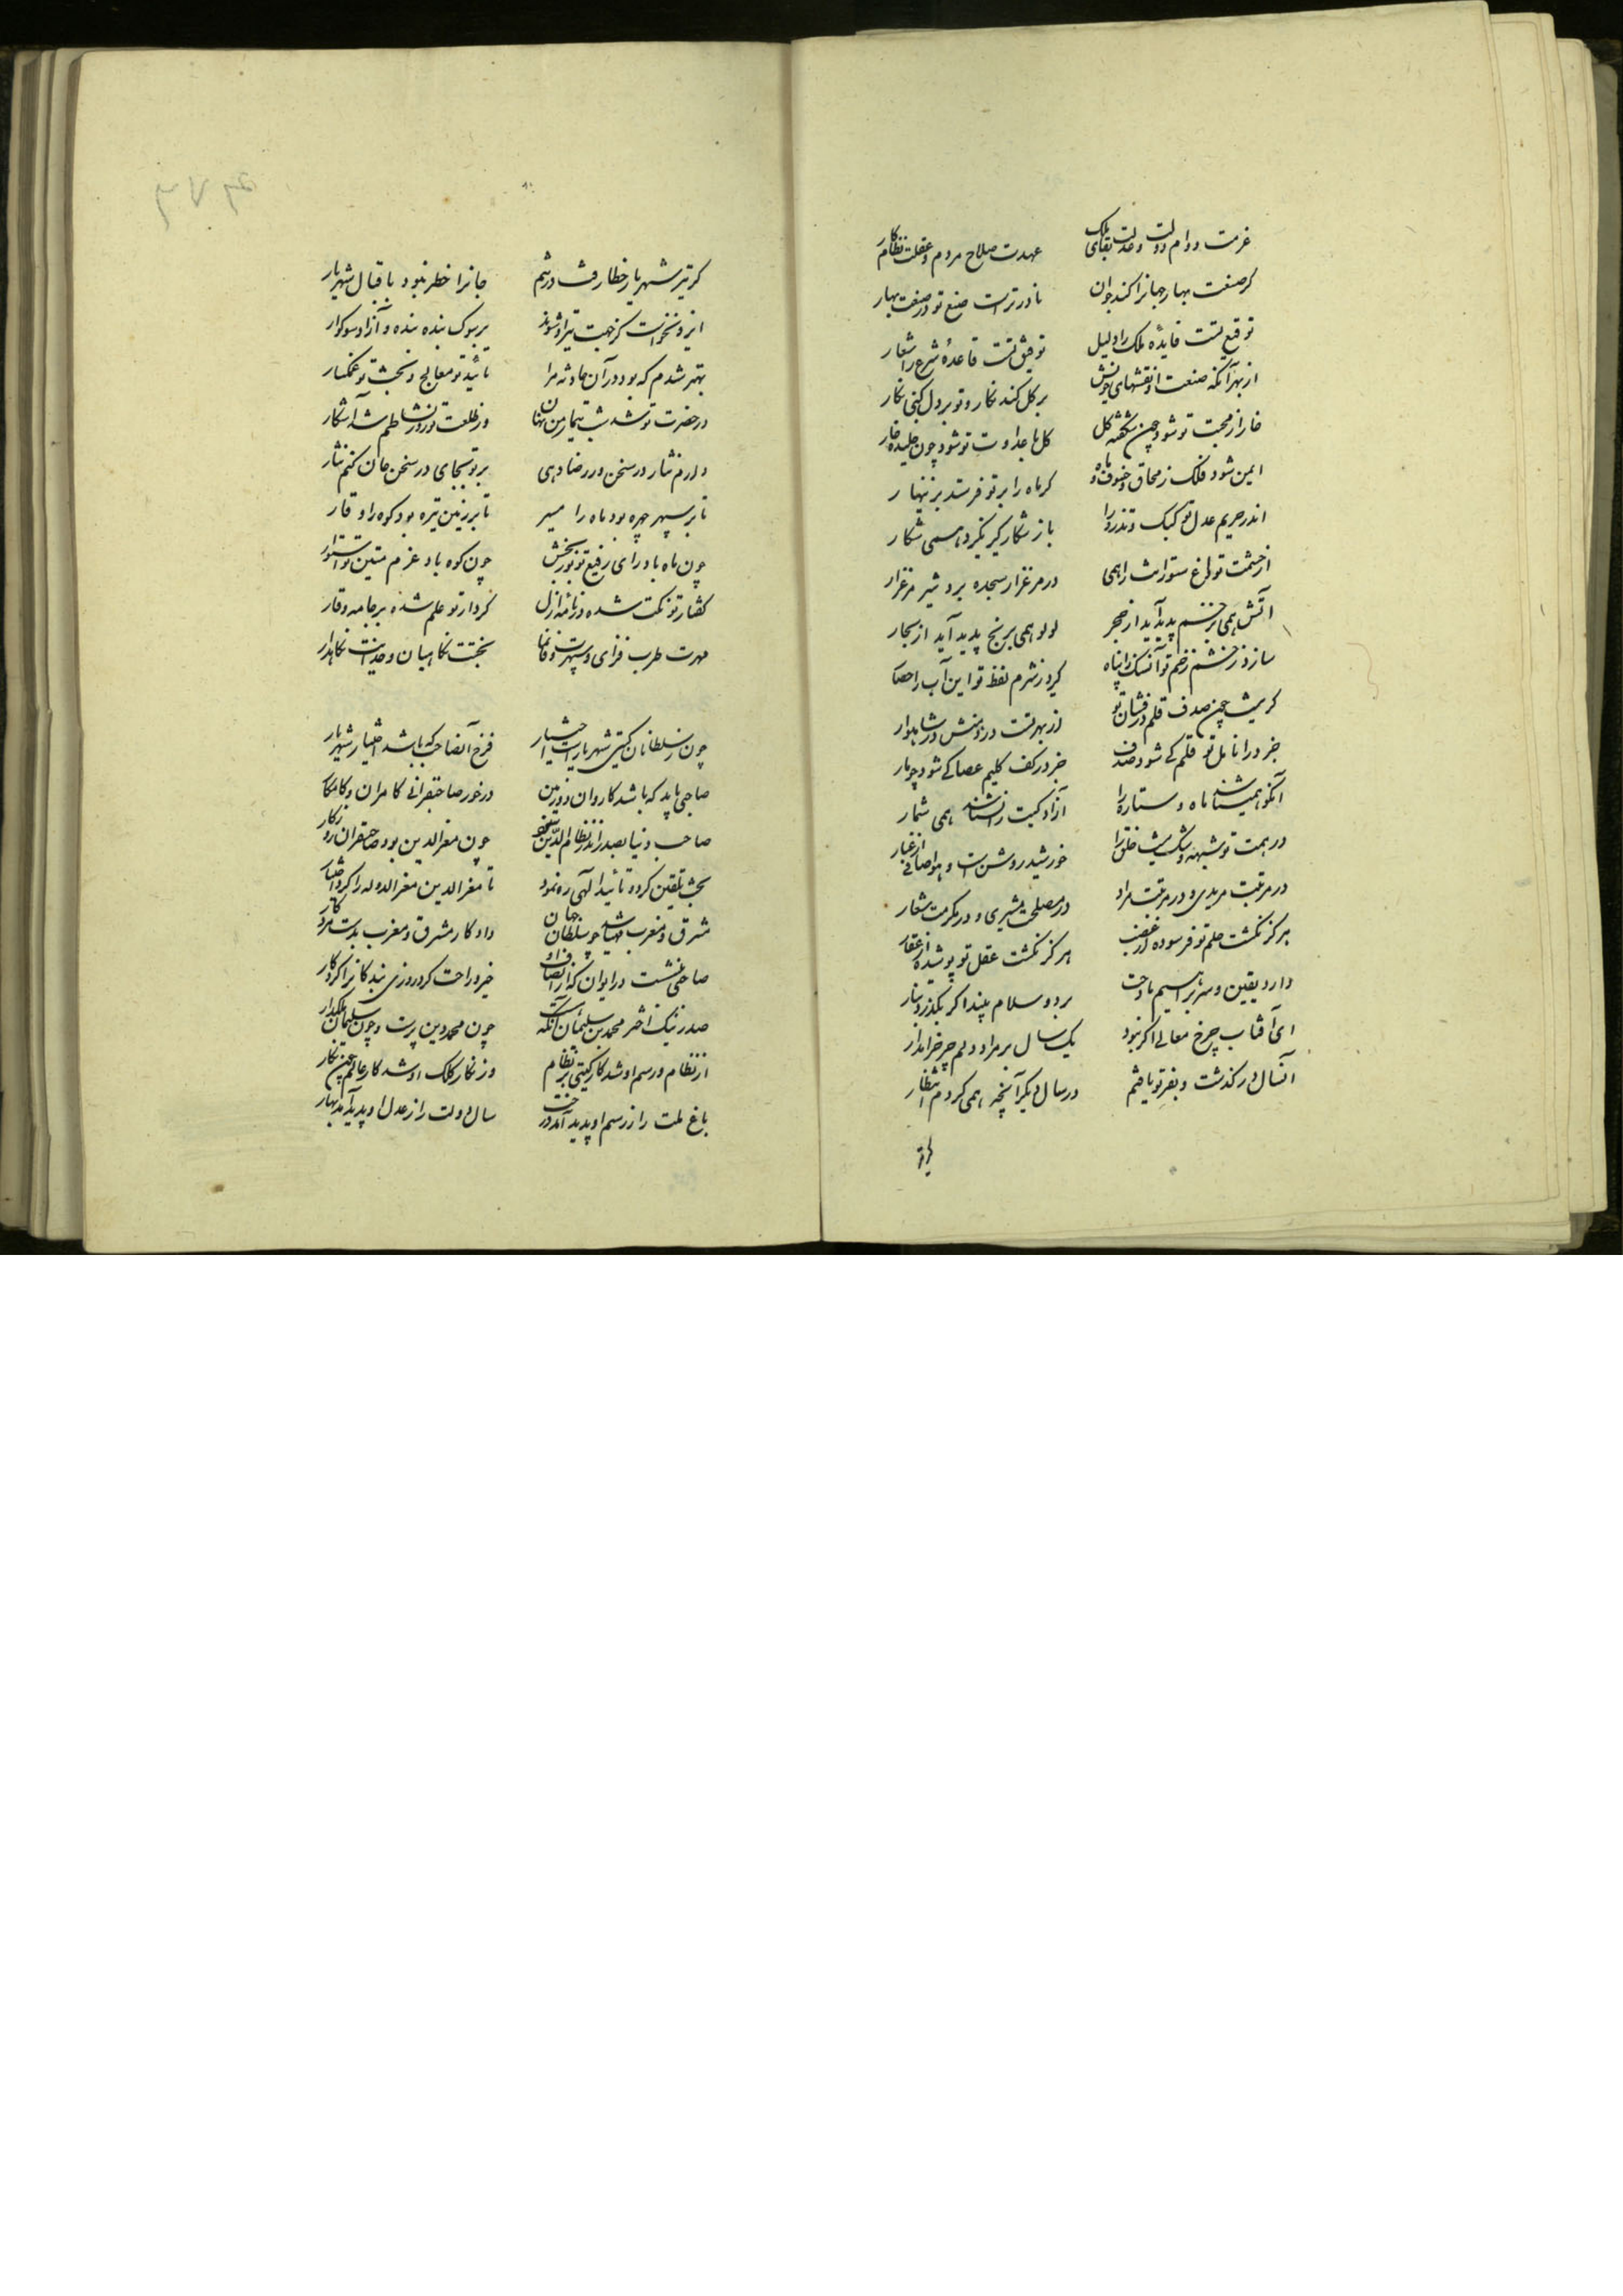 عزمت دوام دولت و عدلت بقای ملک عهدت صلاح مردم و عقلت نظام کار
گر صنعت بهار جهانرا کند جوان نادرترست صنع تو در صنعت بهار
توقیع تست فایده ملک را دلیل توفیق تست قاعدهٔ شرع را شعار
از بهر آنکه صنعت او نقشهای خوش بر گل کند نگار و تو بر دل کنی نگار
خار از محبت تو شود چون شکفته گل گل با عداوت تو شود چون خلیده خار
ایمن شود فلک ز محاق و خسوف ماه گر ماه را بر تو فرستد بزینهار
اندر حریم عدل تو کبک و تذرو را باز شکارگیر نگیرد همی شکار
از حشمت تو داغ ستورانت را همی در مرغزار سجده برد شیر مرغزار
آتش همی بزخم پدید آید از حجر لولو همی برنج پدید آید از بحار
سازد ز خشم زخم تو آن سنگ را پناه گیرد ز شرم لفظ تو این آب را حصار
گر نیست چون صدف قلم درفشان تو از بهر تست در دهنش در شاهوار
جز در انامل تو قلم کی شود صدف جز در کف کلیم عصا کی شود چو مار
آنکو همی شناسد ماه و ستاره را آزاد کیت را نشناسد همی شمار
در همت تو شبهه و شک نیست خلق را خورشید روشن است و هوا صافی از غبار
در مرتبت مریدی و در مرتبت مراد در مصلحت مشیری و در مکرمت مشار
هرگز نگشت حلم تو فرسوده از غضب هرگز نگشت عقل تو پوشیده از عقار
دارد یقین و سر براهیم مادحت برد و سلام بیند اگر بگذرد بنار
ای آفتاب چرخ معالی اگر نبود یک سال بر مراد دلم چرخ را مدار
آنسال در گذشت و بفر تو یافتم در سال دیگر آنچه همی کردم انتظار
گر تیر
گر تیر شهریار خطا رفت در تنم جانرا خطر نبود باقبال شهریار
ایزد نخواست کز جهت تیر او شوند بر سوک بنده بنده و آزاد سوکوار
بهتر شدم که بود در آن حادثه مرا تائید تو معالج و بخت تو غمگسار
در حضرت تو شد شب تیمار من نهان وز طلعت تو روز نشاطم شد آشکار
دارم نثار در سخن ور رضا دهی بر تو بجای در سخن جان کنم نثار
تا بر سپهر چهره بود ماه را مسیر تا بر زمین تیره بود کوه را وقار
چون ماه باد رای رفیع تو نوربخش چون کوه باد عزم متین تو استوار
گفتار تو نکت شده در نامه ازل کردار تو علم شده بر جامه وقار
مهرت طرب فزای و سپهرت وفا نما بختت نگاهبان و خدایت نگاهدار
چون ز سلطانان گیتی شهریارست اختیار فرخ آن صاحب که باشد اختیار شهریار
صاحبی باید که باشد کاردان و دوربین در خور صاحبقرانی کامران و کامکار
صاحب دنیا بصدر اندر نظام الدین سزد چون معزالدین بود صاحبقران روزگار
بخت تلقین کرد و تائید الهی ره نمود تا معزالدین معزالدوله را کرد اختیار
مشرق و مغرب مهیا شد چو سلطان جهان داد کار مشرق و مغرب بدست مرد کار
صاحبی بنشست در ایوان که از انصاف او خیر و راحت کرد روزی بندگانرا کردگار
صدر نیک اختر محمد بن سلیمان آنکه هست چون محمد دین پرست و چون سلیمان ملکدار
از نظام و رسم او شد کار گیتی بر نظام وز نگار کلک او شد کار عالم چون نگار
باغ ملت را ز رسم او پدید آمد درخت سال دولت را ز عدل او پدید آمد بهار